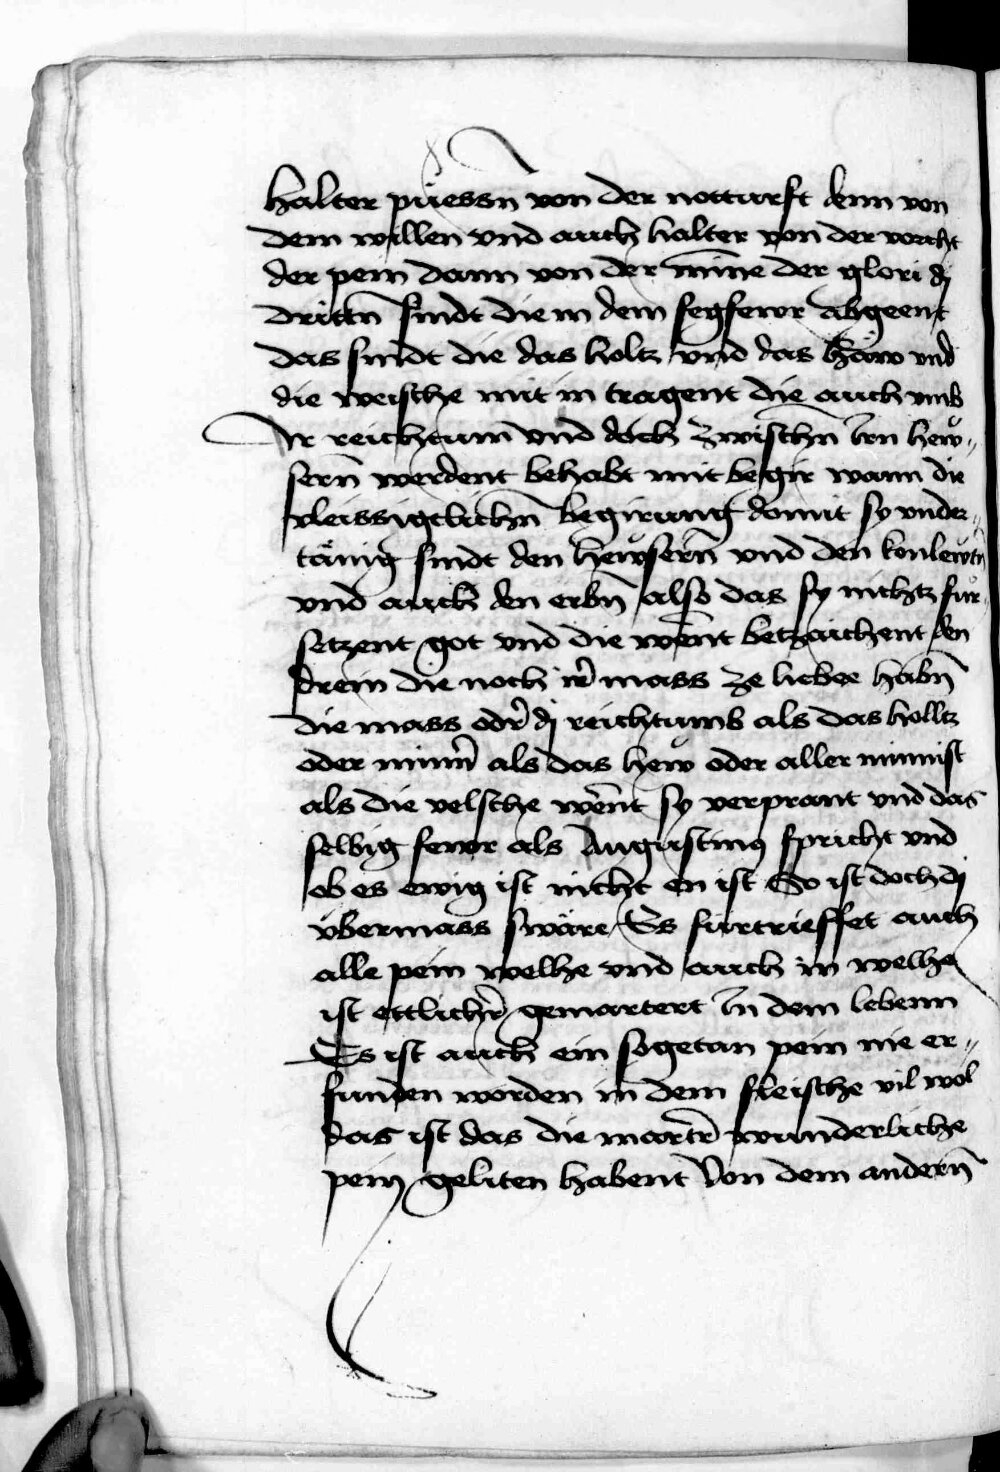 halter püessn̄ von der notturft denn von
dem willen vnd auch halter von der vorcht
der pein dann von der min̄e der glori dj
drittn̄ sindt die in dem fegfewr abgeent
das sindt die das holtz vnd das häw vnd
die veische mit in tragent die auch vmb
Ir reichtum̄ vnd doch zwischn̄ irn hew„
sern̄ werdent behabt mit begir wann die
vleissigclichn̄ begirung domit sy vnder„
tänig sindt den hewsern̄ vnd den konlewtn̄
vnd auch den erbn̄ also das sy nichtz für„
setzent got vnd die wēnt betzaichent den
drein die noch ir̄ mass ze liebee habn̄
die mass odr̄ dj reichtumb als das holltz
oder minn̄ als das hew oder aller minnist
als die velsche wēnt sy verprant vnd das
selbig fewr als Augustinus spricht vnd
ob es ewig ist nicht en ist So ist doch dj
vbermass swäre Es fürtrieffet auch
alle pein welhe vnd auch in welhe
ist ettlichr̄ gemartert In dem lebenn
Es ist auch ein sogetan pein nie er„
funden worden in dem fleische vil wol
das ist das die martr̄ wunderliche
pein geliten habent Von dem andern̄